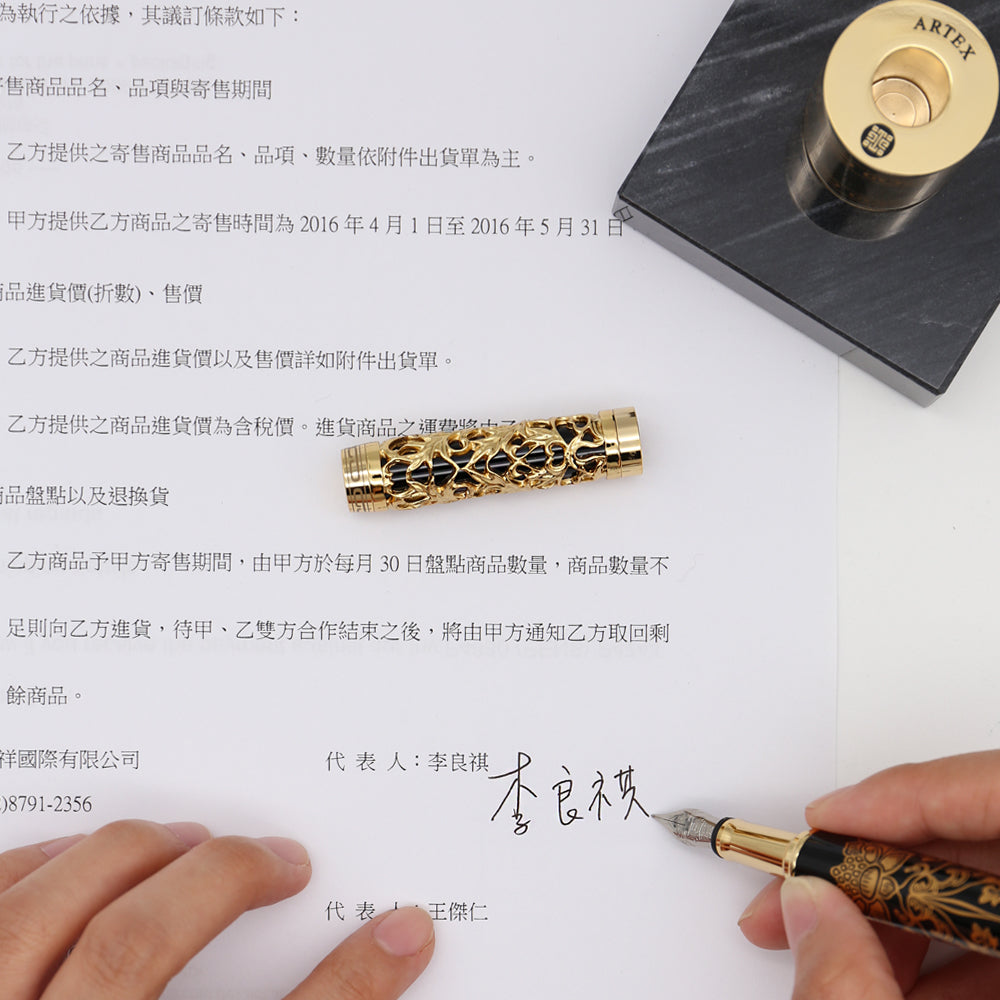 為執行之依據，其議訂條款如下：
ARTEX
寄售商品品名、品項與寄售期間
乙方提供之寄售商品品名、品項、數量依附件出貨單為主。
甲方提供乙方商品之寄售時間為 2016 年 4 月 1 日至 2016 年 5 月 31 日
商品進貨價(折數)、售價
乙方提供之商品進貨價以及售價詳如附件出貨單。
乙方提供之商品進貨價為含稅價。進貨商品之運費將由乙
商品盤點以及退換貨
乙方商品予甲方寄售期間，由甲方於每月 30 日盤點商品數量，商品數量不
足則向乙方進貨，待甲、乙雙方合作結束之後，將由甲方通知乙方取回剩
餘商品。
祥國際有限公司
代 表 人：李良祺
李良祺
)8791-2356
代 表 人：王傑仁